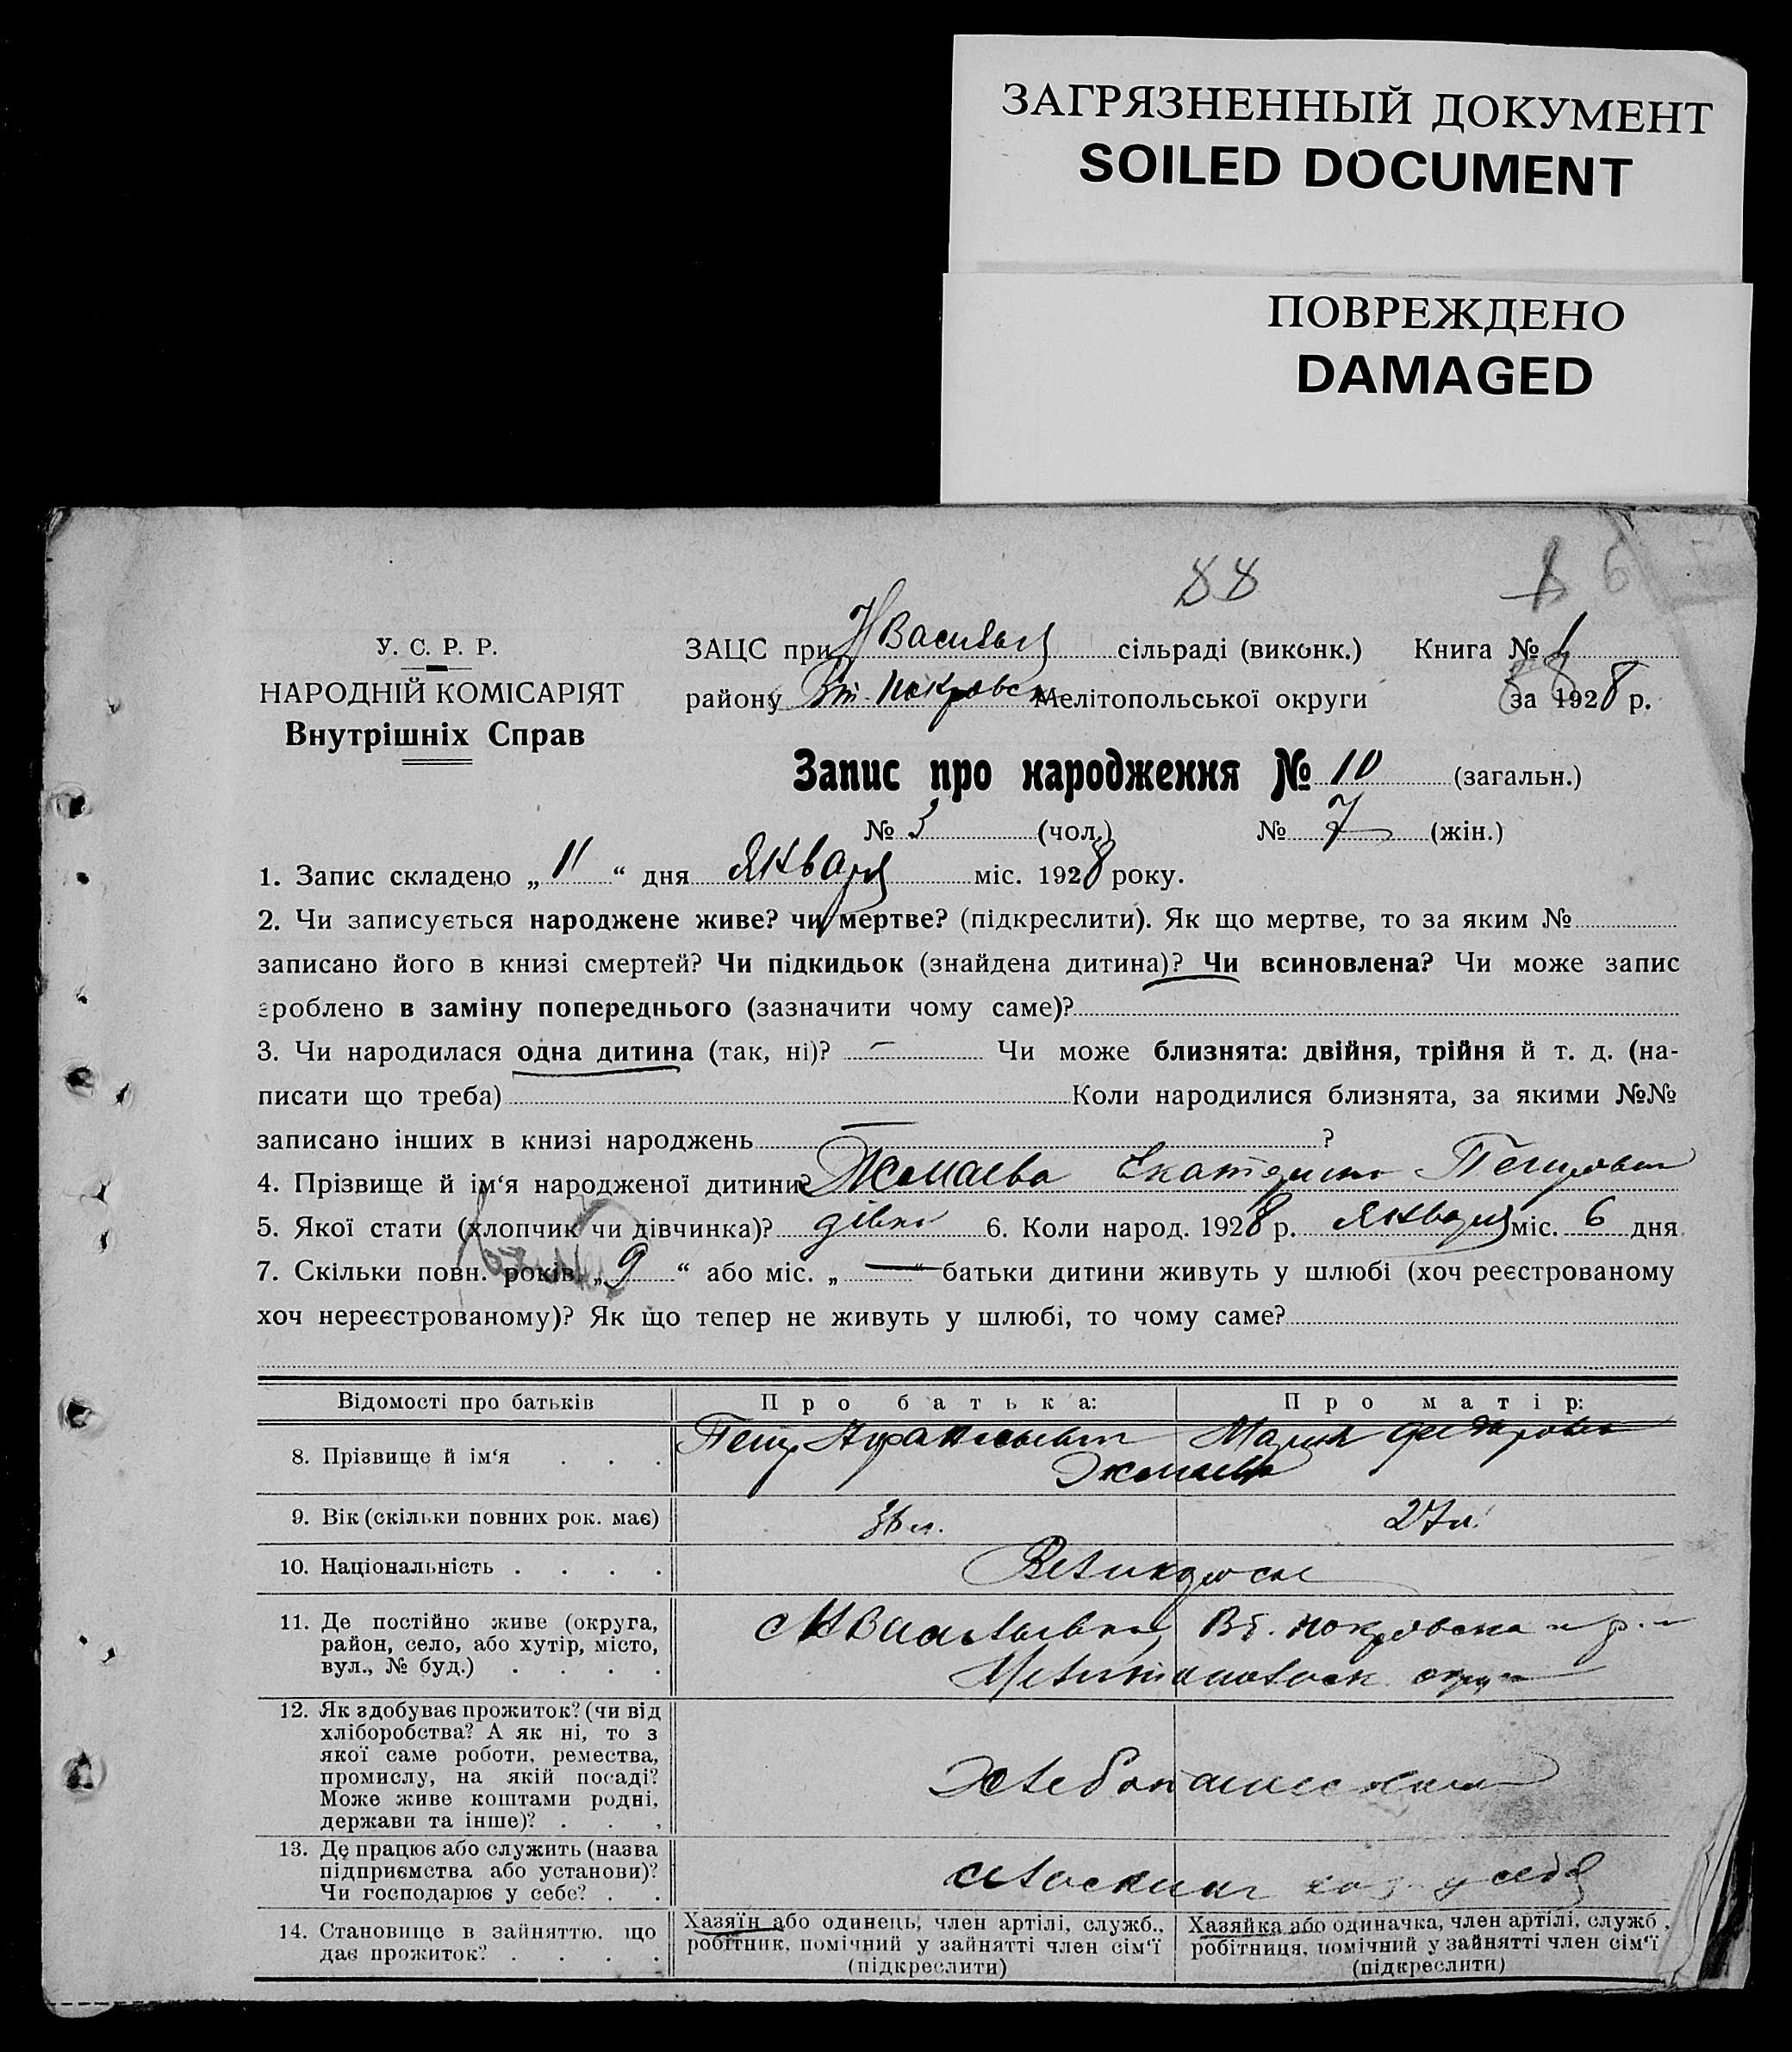 ЗАГРЯЗНЕННЫЙ ДОКУМЕНТ
SOILED DOCUMENT
ПОВРЕЖДЕНО
DAMAGED
88
У. С. Р. Р.
НАРОДНІЙ КОМІСАРІЯТ
Внутрішніх Справ
ЗАЦС при НВасильев сільраді (виконк.) Книга №
району Вт Покровск Мелітопольської округи за 1928 р.
Запис про народження № 10 (загальн.)
№ 3 (чол.) № 7 (жін.)
1. Запис складено „ 11 “ дня Января міс. 1928 року.
2. Чи записується народжене живе? чи мертве? (підкреслити). Як що мертве, то за яким №
записано його в книзі смертей? Чи підкидьок (знайдена дитина)? Чи всиновлена? Чи може запис
зроблено в заміну попереднього (зазначити чому саме)?
3. Чи народилася одна дитина (так, ні)? — Чи може близнята: двійня, трійня й т. д. (на-
писати що треба) Коли народилися близнята, за якими №№
записано інших в книзі народжень — ?
4. Прізвище й ім‘я народженої дитини? Екатерина Петровна
5. Якої стати (хлопчик чи дівчинка)? дівка 6. Коли народ. 1928 р. Января міс. 6 дня
7. Скільки повн. років. „ 9 “ або міс. „ — “ батьки дитини живуть у шлюбі (хоч реєстрованому
хоч нереєстрованому)? Як що тепер не живуть у шлюбі, то чому саме?
Відомості про батьків Про батька: Про матір:
8. Прізвище й ім‘я . . . Петр Афанасьевич Мария Федоровна
9. Вік (скільки повних рок. має) 36 л. 27 л.
10. Національність . . . . Великоросы
11. Де постійно живе (округа,
район, село, або хутір, місто,
вул., № буд.) . . . .
с НВасильевка, Вт. Покровска р-н
Мелитопольск округи
12. Як здобуває прожиток? (чи від
хліборобства? А як ні, то з
якої саме роботи, ремества,
промислу, на якій посаді?
Може живе коштами родні,
держави та інше)? . . .
Хлебопашество
13. Де працює або служить (назва
підприємства або установи)?
Чи господарює у себе? . .
сельским хоз. у себя
14. Становище в зайняттю, що
дає прожиток? . . . .
Хазяїн або одинець, член артілі, служб.,
робітник, помічний у зайнятті член сім‘ї
(підкреслити)
Хазяйка або одиначка, член артілі, служб.,
робітниця, помічний у зайнятті член сім‘ї
(підкреслити)